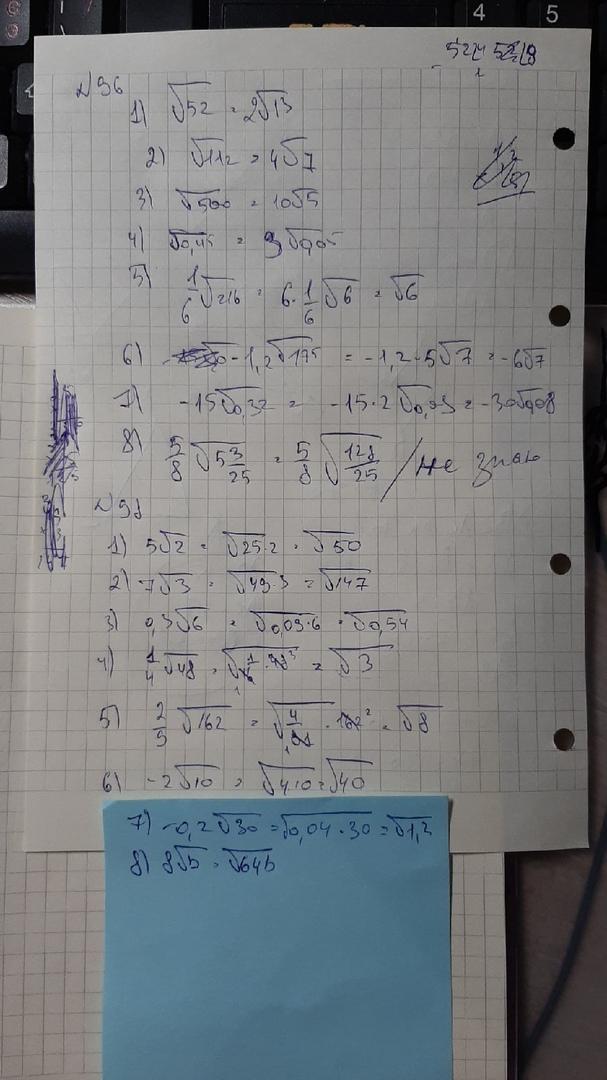 4 5
№96
1) √52 = 2√13
2) √112 = 4√7
3) √500 = 10√5
4) √0,45 = 3√0,05
5) 1/6√216 = 6·1/6√6 = √6
6) -1,2√175 = -1,2·5√7 = -6√7
7) -15√0,32 = -15·2√0,08 = -30√0,08
8) 5/8√5 3/25 = 5/8√128/25 / не знаю
№98
1) 5√2 = √25·2 = √50
2) 7√3 = √49·3 = √147
3) 0,3√6 = √0,09·6 = √0,54
4) 1/4√48 = √1/16·48 3 = √3
5) 2/9√162 = √4/81·162 2 = √8
6) -2√10 = √4·10 = √40
7) -0,2√30 = √0,04·30 = √1,2
8) 8√b = √64b